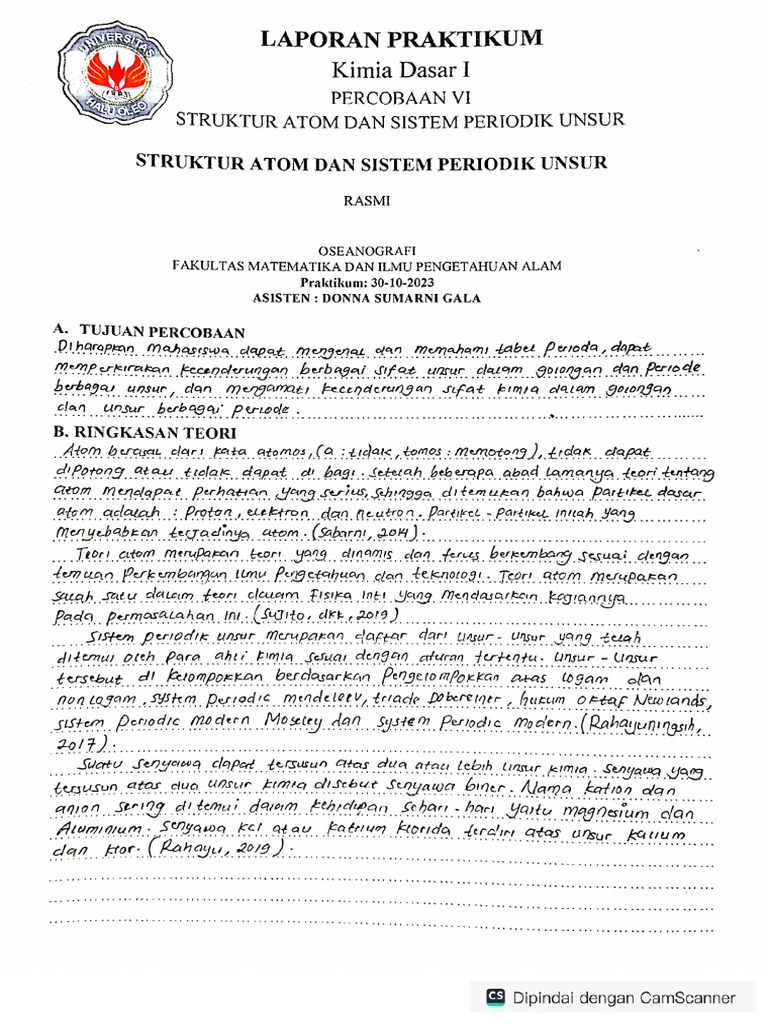 UNIVERSITAS
HALU OLEO
LAPORAN PRAKTIKUM
Kimia Dasar I
PERCOBAAN VI
STRUKTUR ATOM DAN SISTEM PERIODIK UNSUR
STRUKTUR ATOM DAN SISTEM PERIODIK UNSUR
RASMI
OSEANOGRAFI
FAKULTAS MATEMATIKA DAN ILMU PENGETAHUAN ALAM
Praktikum: 30-10-2023
ASISTEN : DONNA SUMARNI GALA
A. TUJUAN PERCOBAAN
Diharapkan Mahasiswa dapat mengenal dan memahami tabel Perioda, dapat
memperkirakan kecenderungan berbagai sifat unsur dalam golongan dan Periode
berbagai unsur, dan mengamati kecenderungan sifat kimia dalam golongan
dan unsur berbagai periode.
B. RINGKASAN TEORI
Atom berasal dari kata atomos, (a : tidak, tomos : Memotong), tidak dapat
dipotong atau tidak dapat di bagi. setelah beberapa abad lamanya teori tentang
atom mendapat Perhatian yang serius, sehingga ditemukan bahwa Partikel dasar
atom adalah : Proton, elektron dan neutron. Partikel-Partikel inilah yang
Menyebabkan terjadinya atom. (Sabarni, 2014).
Teori atom merupakan teori yang dinamis dan terus berkembang sesuai dengan
temuan Perkembangan Ilmu Pengetahuan dan teknologi. Teori atom merupakan
salah satu dalam teori dalam Fisika Inti yang Mendasarkan kagiannya
Pada permasalahan ini. (Sugito, dkk, 2019)
Sistem periodik unsur merupakan daftar dari unsur-unsur yang telah
ditemui oleh Para ahli kimia sesuai dengan aturan tertentu. Unsur-Unsur
tersebut di kelompokkan berdasarkan Pengelompokkan atas logam dan
non logam, system Periodic mendeleev, triade Dobereiner, hukum oktaf Newlands,
sistem Periodic modern Moseley dan system Periodic modern. (Rahayuningsih,
2017).
Suatu senyawa dapat tersusun atas dua atau lebih unsur kimia. Senyawa yang
tersusun atas dua unsur kimia disebut senyawa biner. Nama kation dan
anion sering di temui dalam kehidupan sehari-hari yaitu magnesium dan
Aluminium. Senyawa kcl atau katrium klorida terdiri atas unsur kalium
dan klor. (Rahayu, 2019).
CS Dipindai dengan CamScanner